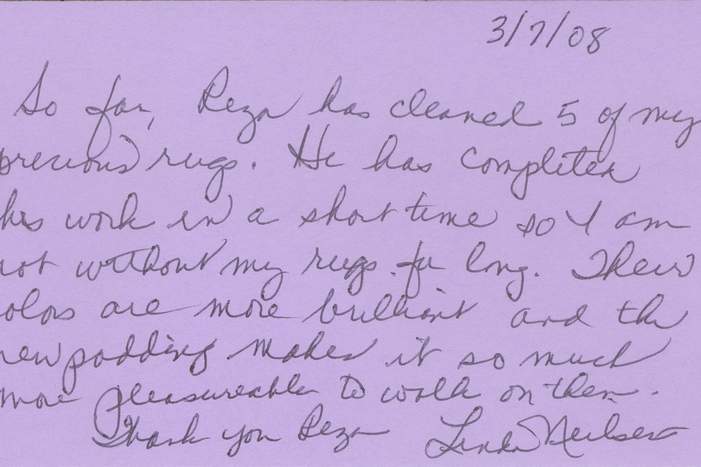 3/7/08
So far, Reza has cleaned 5 of my
precious rugs. He has completed
his work in a short time so I am
not without my rugs for long. Their
olors are more brilliant and the
new padding makes it so much
more pleasureable to walk on them.
Thank you Reza Linda Neilsen